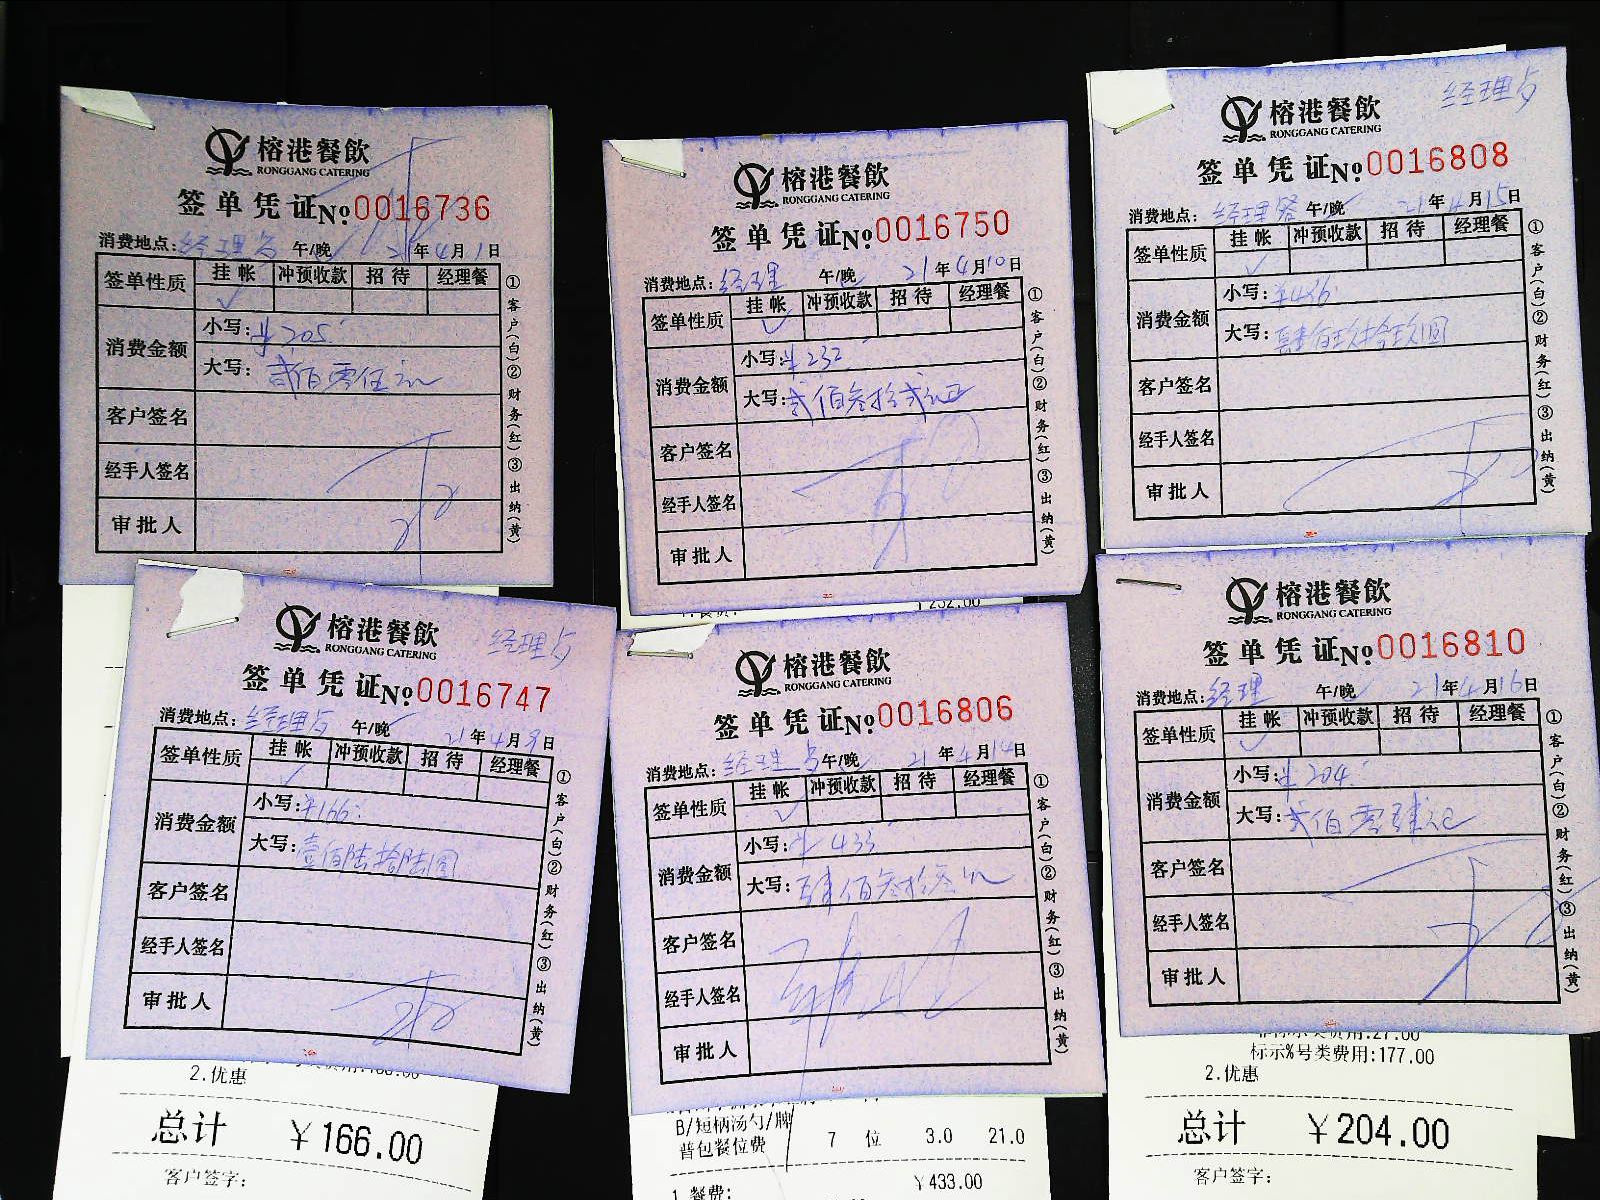 榕港餐飲
RONGGANG CATERING
签单凭证 No.0016736
消费地点: 经理 午/晚 21年4月1日
签单性质 挂帐 冲预收款 招待 经理餐
✓
消费金额 小写: ¥205
大写: 贰佰零伍元
客户签名
经手人签名
审批人
①客户(白)②财务(红)③出纳(黄)
榕港餐飲
RONGGANG CATERING
签单凭证 No.0016750
消费地点: 经理 午/晚 21年4月10日
签单性质 挂帐 冲预收款 招待 经理餐
✓
消费金额 小写: ¥232
大写: 贰佰叁拾贰元正
客户签名
经手人签名
审批人
①客户(白)②财务(红)③出纳(黄)
¥232.00
经理
榕港餐飲
RONGGANG CATERING
签单凭证 No.0016808
消费地点: 经理 午/晚 21年4月15日
签单性质 挂帐 冲预收款 招待 经理餐
✓
消费金额 小写:
大写:
客户签名
经手人签名
审批人
①客户(白)②财务(红)③出纳(黄)
榕港餐飲
RONGGANG CATERING
经理
签单凭证 No.0016747
消费地点: 经理 午/晚 21年4月9日
签单性质 挂帐 冲预收款 招待 经理餐
✓
消费金额 小写: ¥166
大写: 壹佰陆拾陆圆
客户签名
经手人签名
审批人
①客户(白)②财务(红)③出纳(黄)
2.优惠
总计 ¥166.00
客户签字:
榕港餐飲
RONGGANG CATERING
签单凭证 No.0016806
消费地点: 经理 午/晚 21年4月14日
签单性质 挂帐 冲预收款 招待 经理餐
✓
消费金额 小写: ¥433
大写: 肆佰叁拾叁元
客户签名
经手人签名
审批人
①客户(白)②财务(红)③出纳(黄)
B/短柄汤勺/牌
普包餐位费 7 位 3.0 21.0
¥433.00
1.餐费:
榕港餐飲
RONGGANG CATERING
签单凭证 No.0016810
消费地点: 经理 午/晚 21年4月16日
签单性质 挂帐 冲预收款 招待 经理餐
✓
消费金额 小写: ¥204
大写: 贰佰零肆元正
客户签名
经手人签名
审批人
①客户(白)②财务(红)③出纳(黄)
标示%号类费用:177.00
2.优惠
总计 ¥204.00
客户签字: